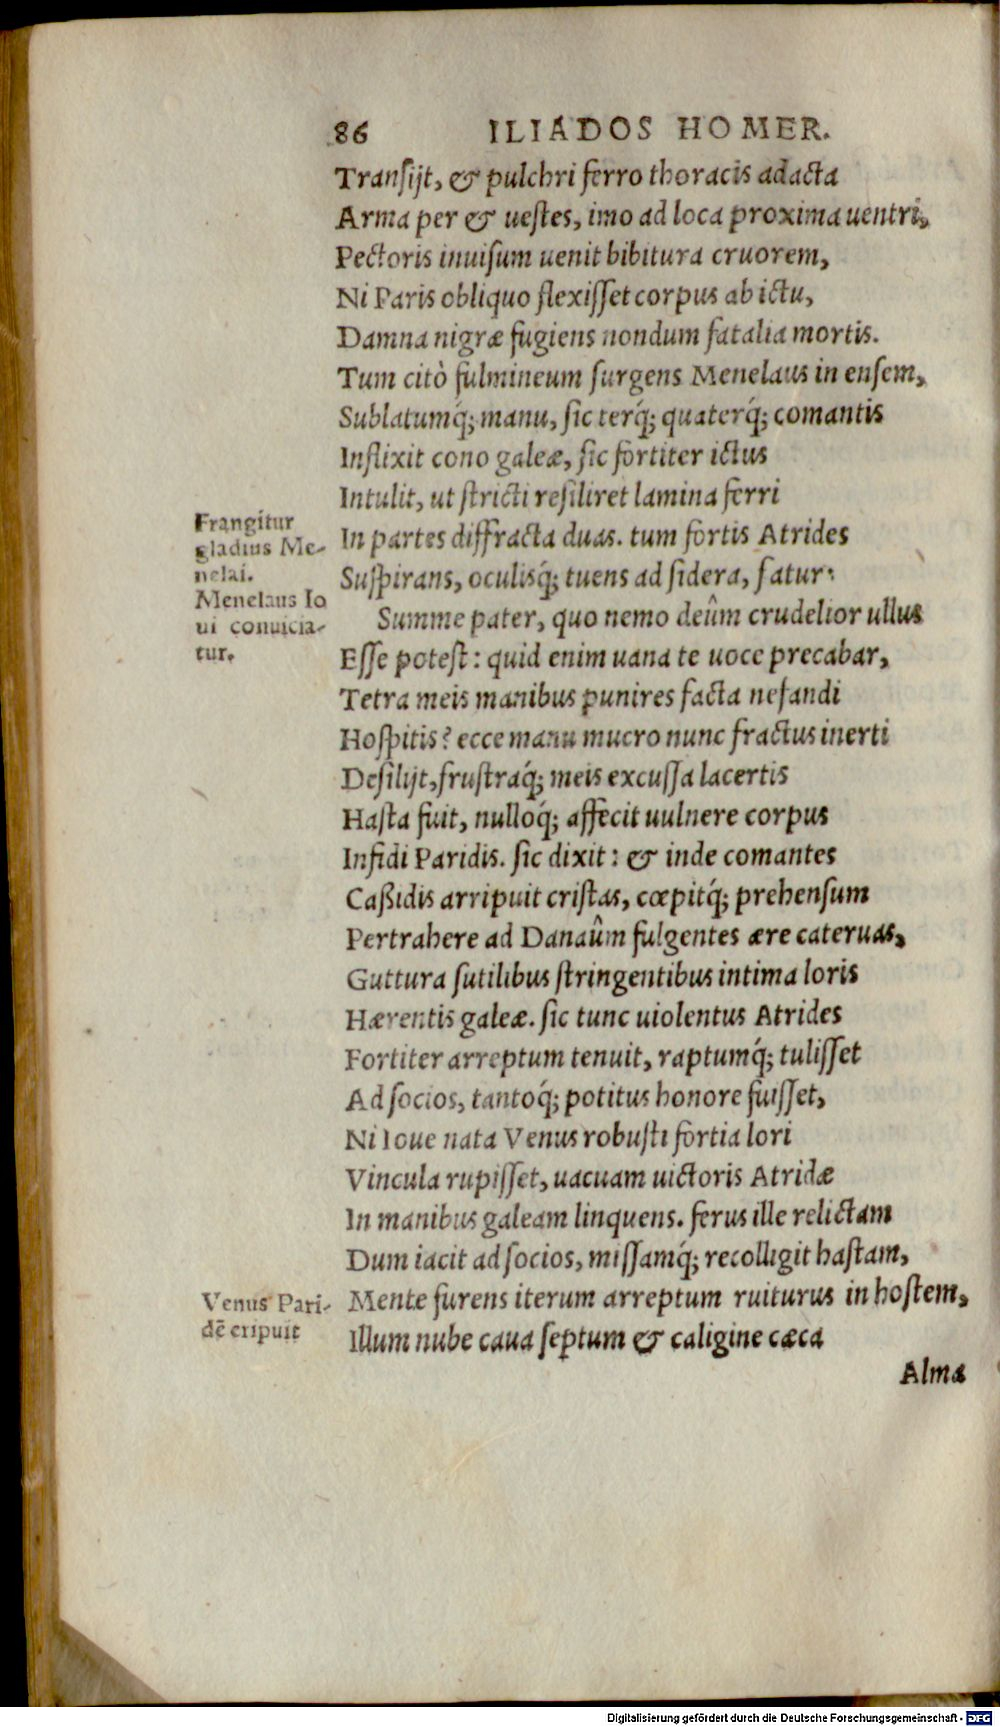 86 ILIADOS HOMER.
Transijt, & pulchri ferro thoracis adacta
Arma per & uestes, imo ad loca proxima uentri,
Pectoris inuisum uenit bibitura cruorem,
Ni Paris obliquo flexisset corpus ab ictu,
Damna nigræ fugiens nondum fatalia mortis.
Tum citò fulmineum surgens Menelaus in ensem,
Sublatumq́; manu, sic terq́; quaterq́; comantis
Inflixit cono galeæ, sic fortiter ictus
Intulit, ut stricti resiliret lamina ferri
In partes diffracta duas. tum fortis Atrides
Suspirans, oculisq́; tuens ad sidera, fatur:
Frangitur
gladius Me-
nelai.
Menelaus Io
ui conuicia-
tur.
Summe pater, quo nemo deûm crudelior ullus
Esse potest: quid enim uana te uoce precabar,
Tetra meis manibus punires facta nefandi
Hospitis? ecce manu mucro nunc fractus inerti
Desilijt, frustraq́; meis excussa lacertis
Hasta fuit, nulloq́; affecit uulnere corpus
Infidi Paridis. sic dixit: & inde comantes
Caßidis arripuit cristas, cœpitq́; prehensum
Pertrahere ad Danaûm fulgentes ære cateruas,
Guttura sutilibus stringentibus intima loris
Hærentis galeæ. sic tunc uiolentus Atrides
Fortiter arreptum tenuit, raptumq́; tulisset
Ad socios, tantoq́; potitus honore fuisset,
Ni Ioue nata Venus robusti fortia lori
Vincula rupisset, uacuam uictoris Atridæ
In manibus galeam linquens. ferus ille relictam
Dum iacit ad socios, missamq́; recolligit hastam,
Mente furens iterum arreptum ruiturus in hostem,
Illum nube caua septum & caligine cæca
Venus Pari-
dẽ eripuit
Alma
Digitalisierung gefördert durch die Deutsche Forschungsgemeinschaft - DFG